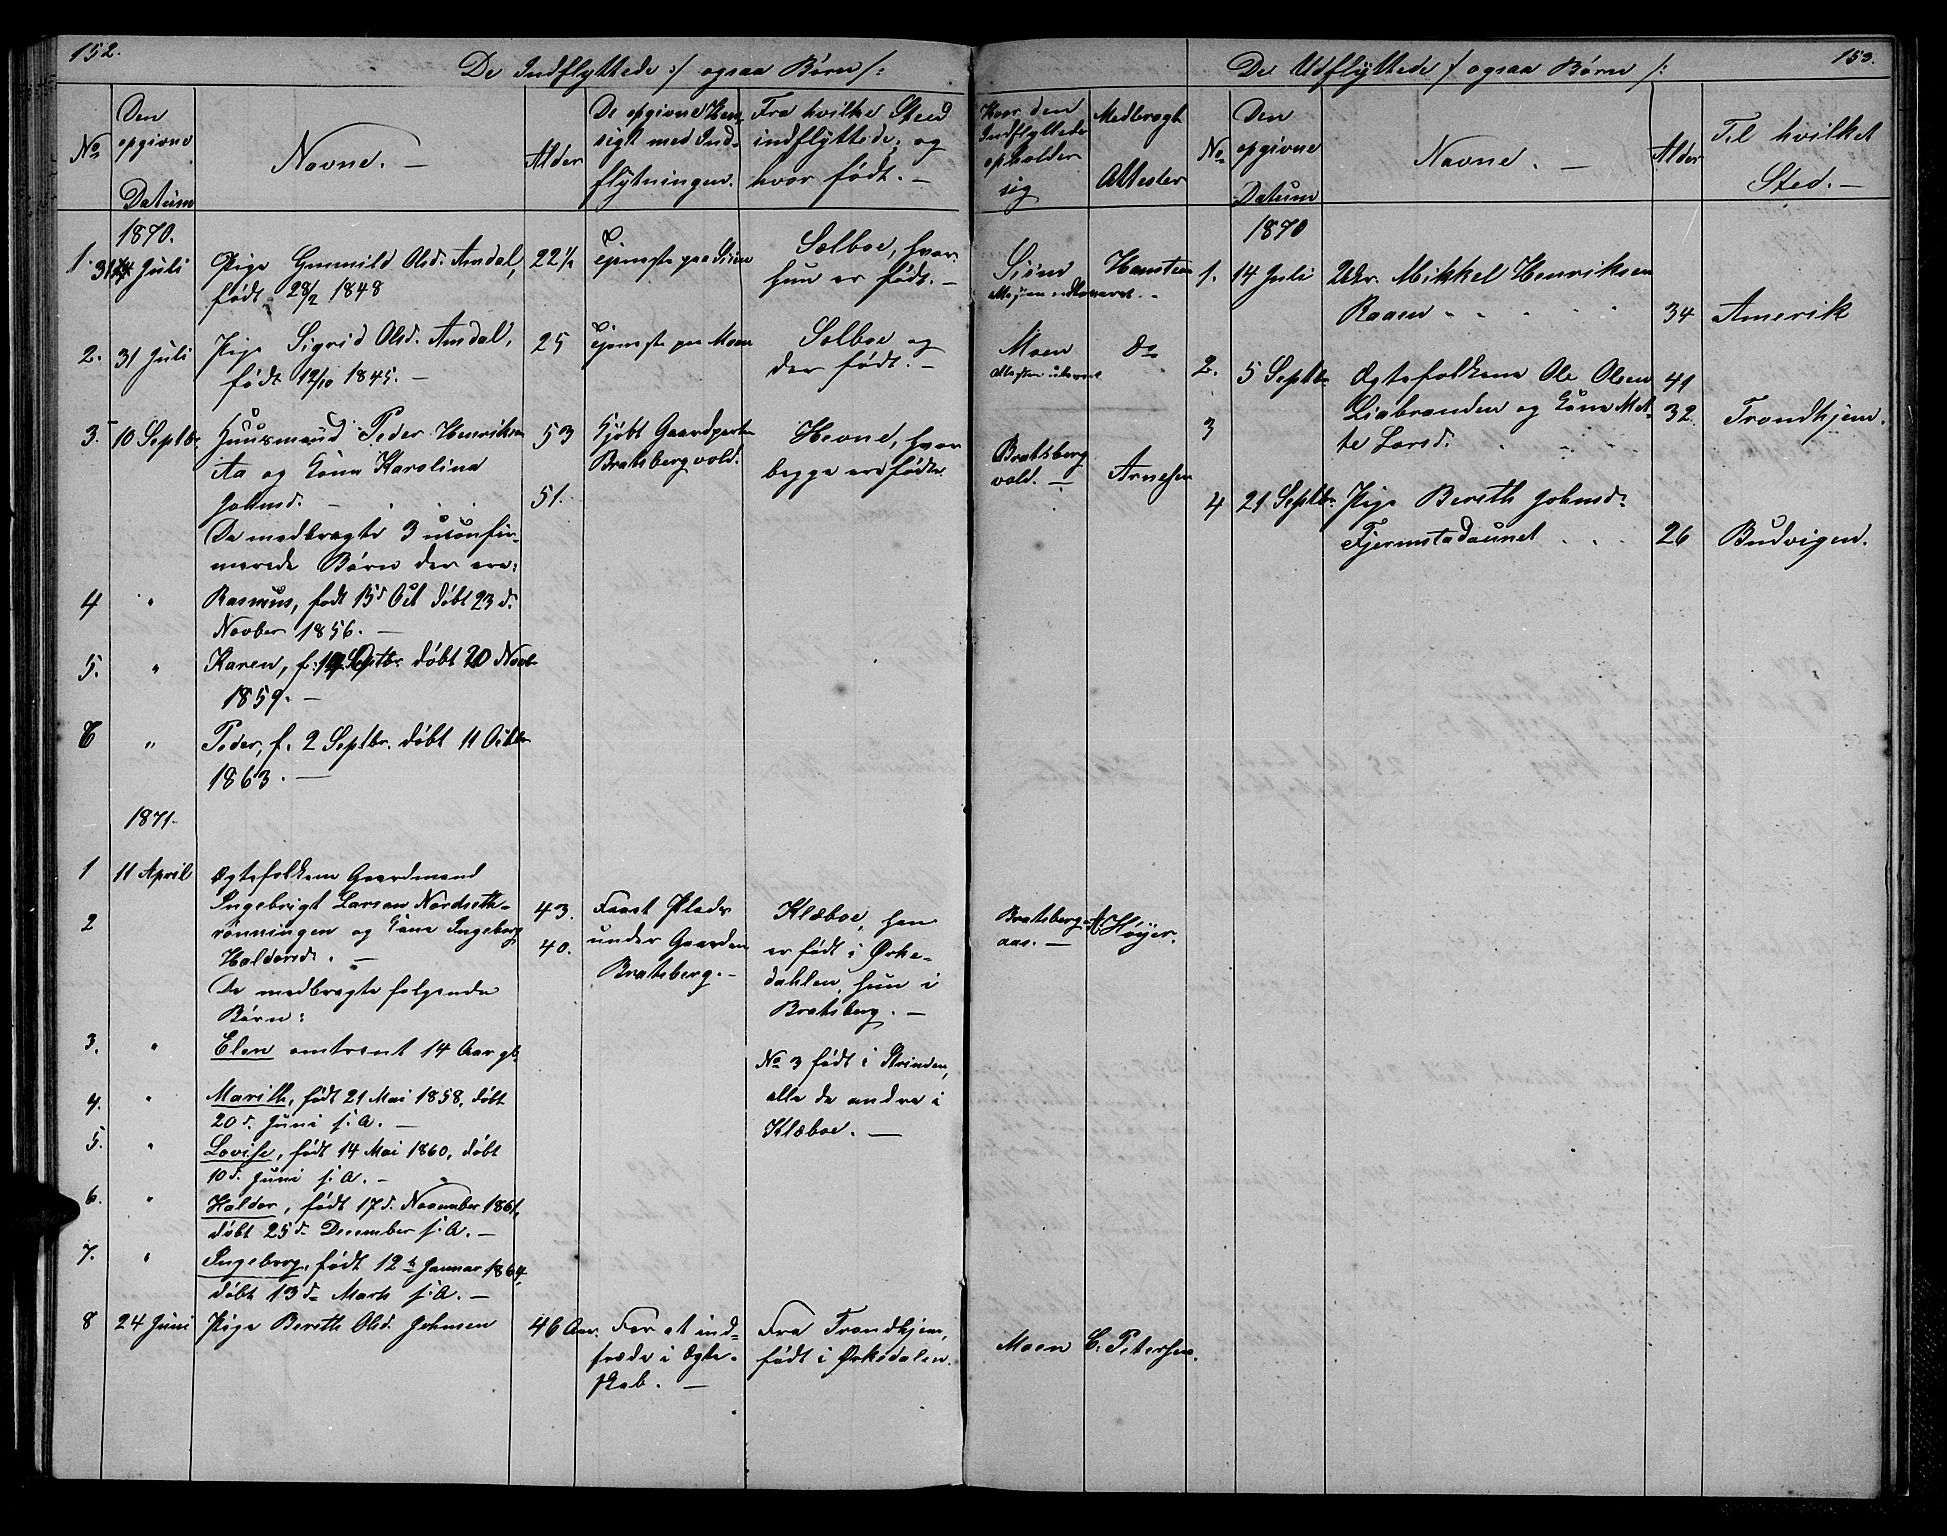 152.
De Indflyttede :/ ogsaa Børn /:
No
Den opgivne Datum
Navne. —
Alder
De opgivne Hen-
sigt med Ind-
flytningen.
Fra hvilke Sted
indflyttede, og
hvor født. —
Hvor den
Indflyttede
opholder
sig
Medbragt
Attester
1870.
1. 31 Juli
Pige Gunnild Olsd. Amdal,
født 28/2 1848
22½
tjeneste paa
Selboe, hvor
hun er født. —
Hansteen
2. 31 Juli
Pige Sigrid Olsd. Amdal,
født 12/10 1845. —
25
tjeneste paa Moen
Selboe og
der født. —
Moen
do
3. 10 Septbr.
Huusmand Peder Henriksen
Aa og Kone Karolina
Johnsd. —
53
51.
Kjøbt Gaardparten
Bratsbergvold.
Hevne, hvor
begge ere fødte.
Bratsberg
vold. —
Arnesen
De medbragte 3 uconfir-
merede Børn der ere:
4 " Rasmus, født 15d Oct døbt 23 d.
Novber 1856. —
5. " Karen, f. Septbr. døbt 20 Novb.
1859. —
6 " Peder, f. 2 Septbr. døbt 11 Octbr
1863. —
1871.
1 11 April
2
Ægtefolkene Gaardmand
Ingebrigt Larsen Nordseth-
rønningen og Kone Ingeborg
Haldorsd. —
43.
40.
Faaet Plads
under Gaarden
Bratsberg. —
Klæboe, han
er født i Ørke-
dahlen, hun i
Bratsberg. —
Bratsberg-
aas. —
Høyer.
De medbragte folgende
Børn:
3. " Elen omtrent 14 Aar gl.
No 3 født i Strinden,
alle de andre i
Klæboe. —
4. " Marith, født 21 Mai 1858, døbt
20 d. Juni s. A. —
5. " Lovise, født 14 Mai 1860, døbt
10 d. Juni s. A. —
6. " Haldor, født 17 d. November 1861,
døbt 25 d. December s. A. —
7. " Ingeborg, født 12 Januar 1864,
døbt 13 d. Marts s. A. —
8 24 Juni
Pige Bereth Olsd. Johnsen
46 Aar.
For at ind-
træde i Ægte-
skab. —
Fra Trondhjem,
født i Ørkedalen.
Moen
C. Petersen.
153.
De Udflyttede / ogsaa Børn /:
No
Den
opgivne
Datum
Navne. —
Alder
Til hvilket
Sted. —
1870
1. 14 Juli
Mikkel Henriksen
Raaen
34
Amerik
2. 5 Septbr.
3
Ægtefolkene Ole Olsen
Liabranden og Kone Met-
te Larsd.
41
32
Trondhjem.
4 21 Septbr.
Pige Bereth Johnsd.
Fjermstadaunet
26
Budvigen.